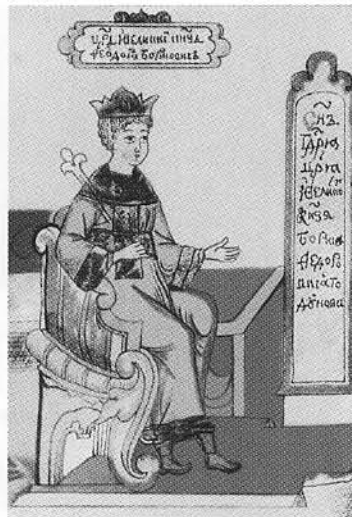 црь и великі кнзь
Ѳеодоръ Борисовичъ
Снъ
Гдря
Цря
и Велико
Кнзя
Бориса
Ѳедоро
вича Го
дунова